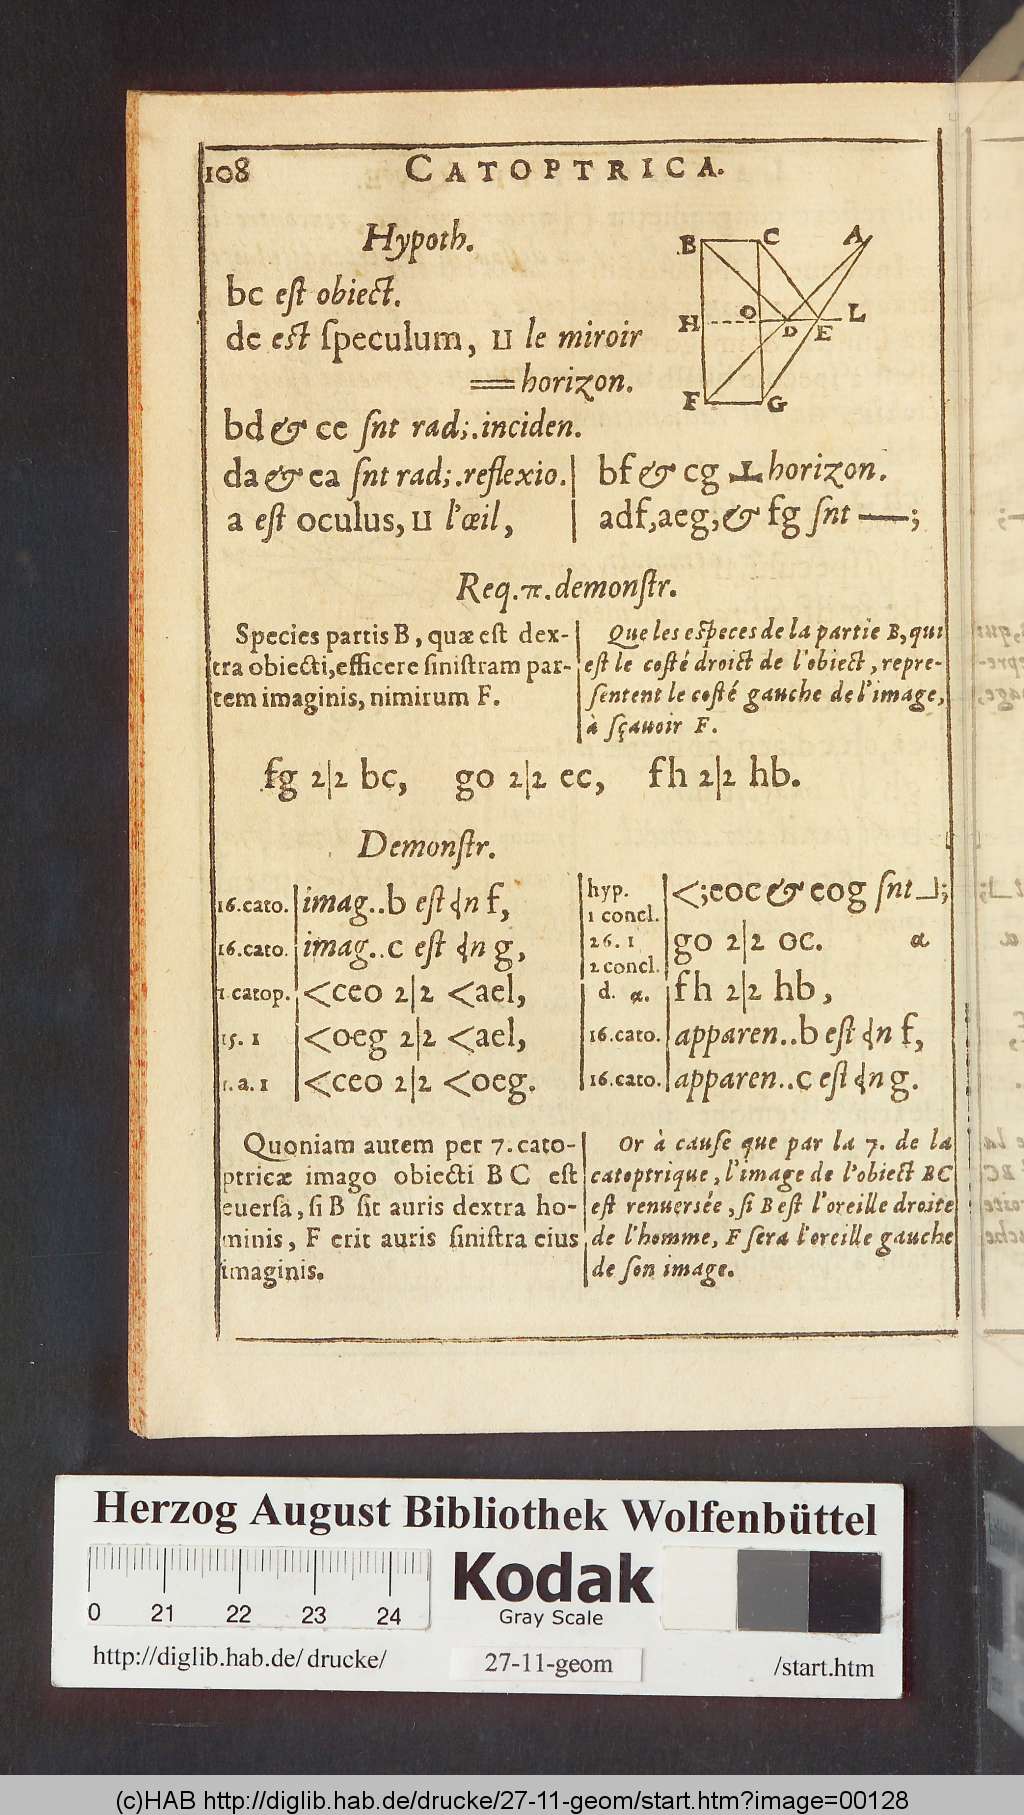 108 CATOPTRICA.
Hypoth.
bc eſt obiect.
de eſt ſpeculum, ⊔ le miroir
══ horizon.
bd & ce ſnt rad;.inciden.
da & ea ſnt rad;.reflexio.
a eſt oculus, ⊔ l'œil,
bf & cg ⊥ horizon.
adf, aeg, & fg ſnt —;
B C A
H O D E L
F G
Req. π. demonſtr.
Species partis B, quæ eſt dex-
tra obiecti, efficere ſiniſtram par-
tem imaginis, nimirum F.
Que les eſpeces de la partie B, qui
eſt le coſté droict de l'obiect, repre-
ſentent le coſté gauche de l'image,
à ſçauoir F.
fg 2|2 bc, go 2|2 ec, fh 2|2 hb.
Demonſtr.
16.cato. imag..b eſt ⫞n f,
16.cato. imag..c eſt ⫞n g,
1.catop. <ceo 2|2 <ael,
15. 1 <oeg 2|2 <ael,
1.a.1 <ceo 2|2 <oeg.
hyp. <;eoc & eog ſnt ⅃;
1 concl.
26. 1 go 2|2 oc. α
2 concl.
d. α. fh 2|2 hb,
16.cato. apparen..b eſt ⫞n f,
16.cato. apparen..c eſt ⫞n g.
Quoniam autem per 7. cato-
ptricæ imago obiecti BC eſt
euerſa, ſi B ſit auris dextra ho-
minis, F erit auris ſiniſtra eius
imaginis.
Or à cauſe que par la 7. de la
catoptrique, l'image de l'obiect BC
eſt renuerſée, ſi B eſt l'oreille droite
de l'homme, F ſera l'oreille gauche
de ſon image.
Herzog August Bibliothek Wolfenbüttel
0 21 22 23 24
Kodak
Gray Scale
http://diglib.hab.de/drucke/ 27-11-geom /start.htm
(c)HAB http://diglib.hab.de/drucke/27-11-geom/start.htm?image=00128